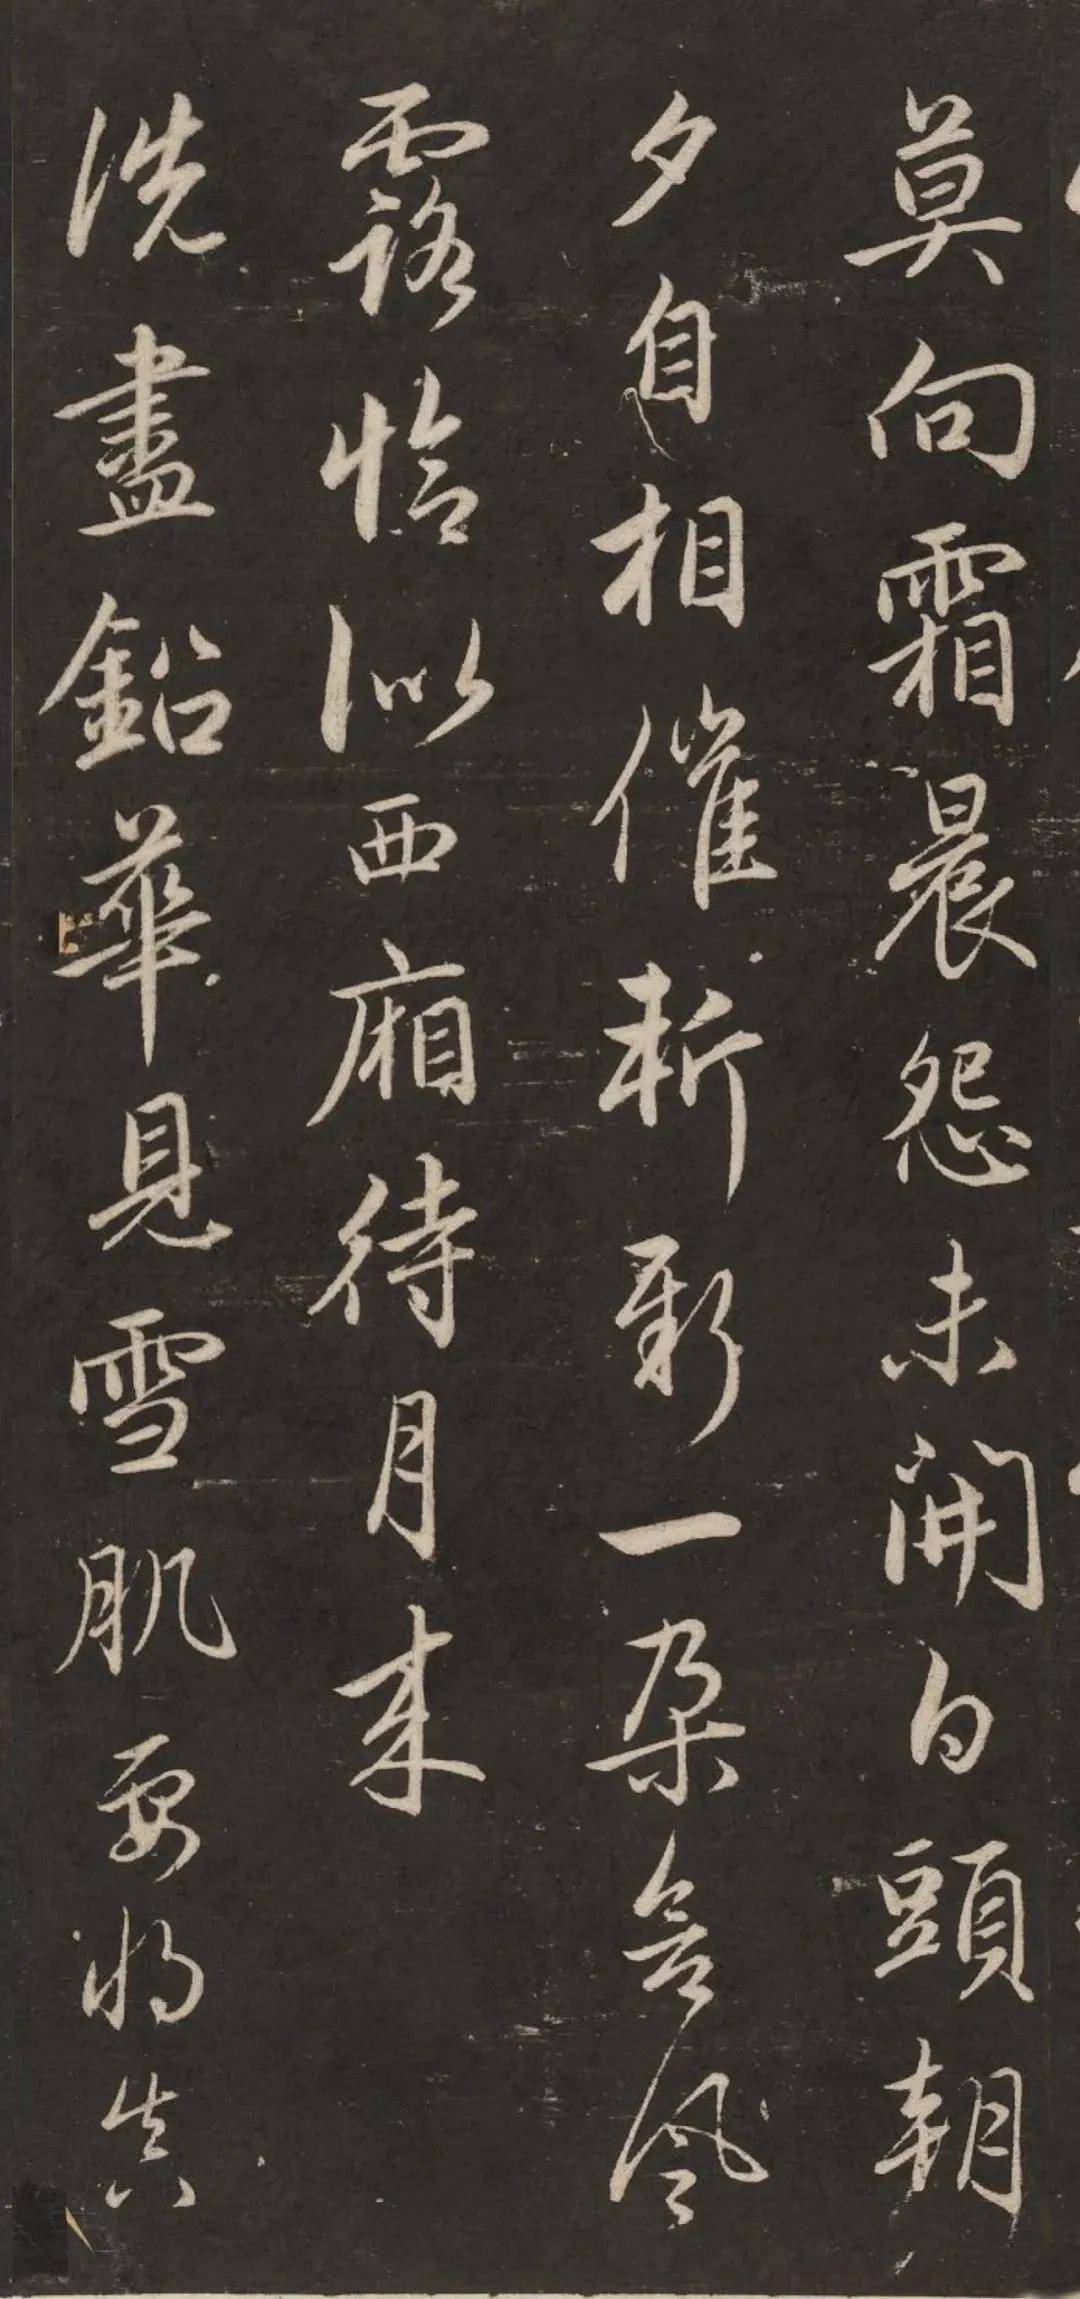 莫向霜晨怨未開白頭朝
夕自相催斬新一朵含風
露恰似西廂待月來
洗盡鉛華見雪肌要將真